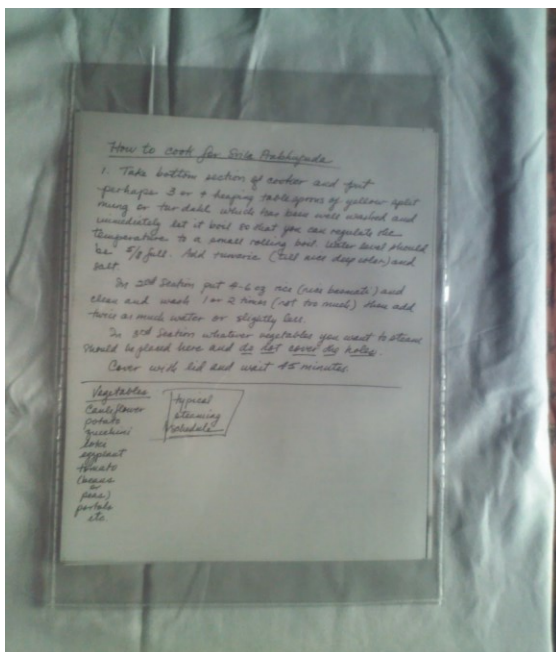 How to cook for Srila Prabhupada
1. Take bottom section of cooker and put
perhaps 3 or 4 heaping tablespoons of yellow split
mung or tur dahl which has been well washed and
immediately let it boil so that you can regulate the
temperature to a small rolling boil. Water level should
be 5/8 full. Add tumeric (till nice deep color) and
salt.
In 2nd section put 4-6 oz rice (nice basmati) and
clean and wash 1 or 2 times (not too much) then add
twice as much water or slightly less.
In 3rd section whatever vegetables you want to steam
should be placed here and do not cover the holes.
Cover with lid and wait 45 minutes.
Vegetables
cauliflower
potato
zucchini
loki
eggplant
tomato
(beans
or
peas)
portals
etc.
typical
steaming
schedule